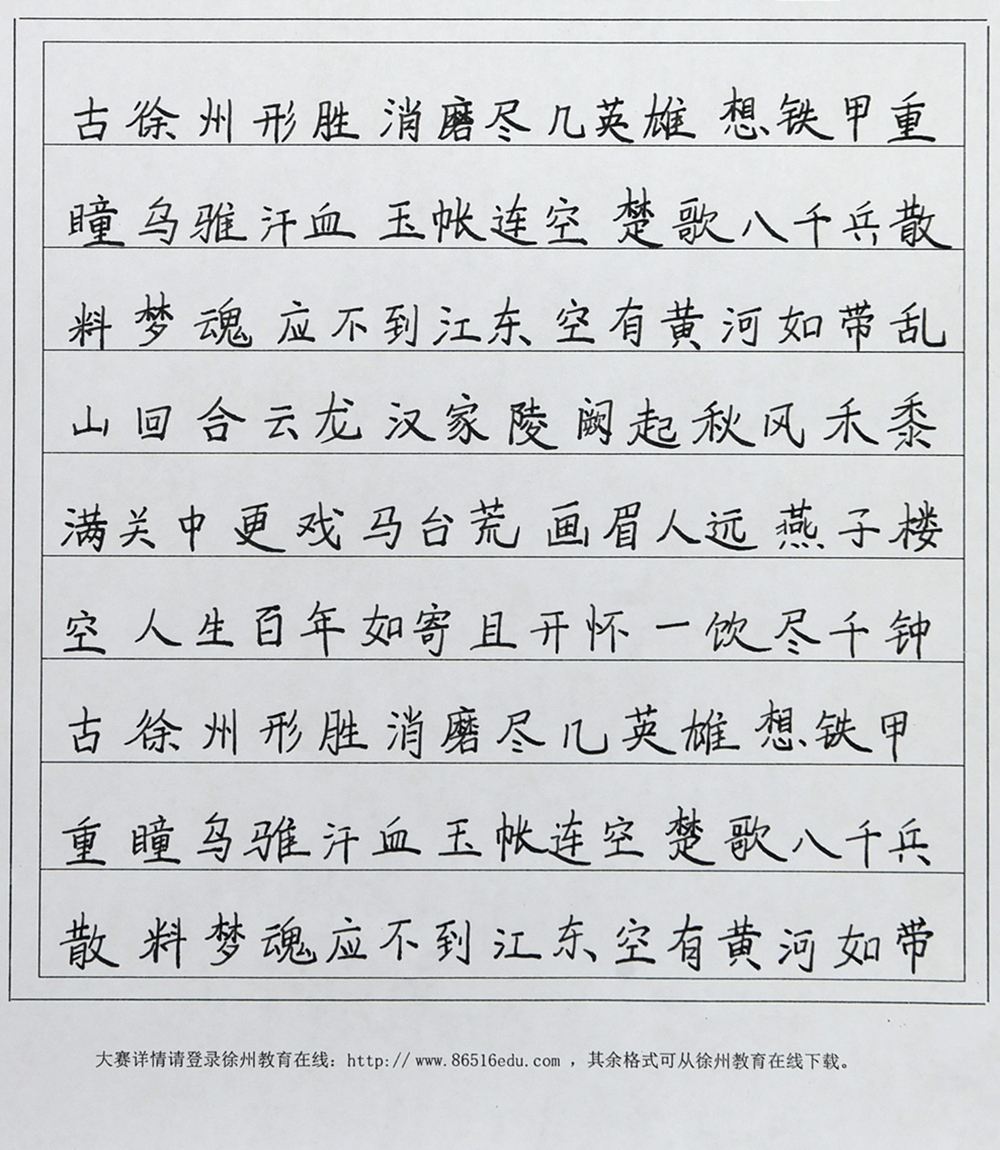 古徐州形胜 消磨尽几英雄 想铁甲重
瞳 乌骓汗血 玉帐连空 楚歌八千兵散
料梦魂 应不到江东 空有黄河如带 乱
山回合云龙 汉家陵阙起秋风 禾黍
满关中 更戏马台荒 画眉人远 燕子楼
空 人生百年如寄 且开怀 一饮尽千钟
古徐州形胜 消磨尽几英雄 想铁甲
重瞳 乌骓汗血 玉帐连空 楚歌八千兵
散 料梦魂应不到江东 空有黄河如带
大赛详情请登录徐州教育在线：http://www.86516edu.com ，其余格式可从徐州教育在线下载。